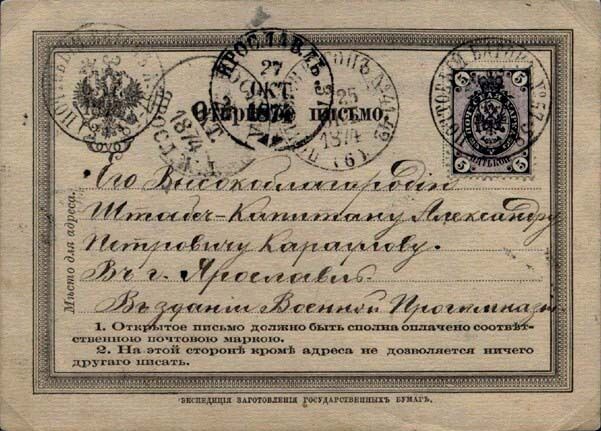 ЯРОСЛАВЛЬ
27
ОКТ.
1874
25
1874
(6)
ПОЧТОВЫЙ ВАГОНЪ
5 5
5 5
Открытое письмо.
Его Высокоблагородію
Штабсъ-Капитану Александру
Петровичу Караулову.
Въ г. Ярославль.
Въ зданіи Военной Прогимназіи
Мѣсто для адреса:
1. Открытое письмо должно быть сполна оплачено соотвѣт-
ственною почтовою маркою.
2. На этой сторонѣ кромѣ адреса не дозволяется ничего
другаго писать.
ЭКСПЕДИЦІЯ ЗАГОТОВЛЕНІЯ ГОСУДАРСТВЕННЫХЪ БУМАГЪ.